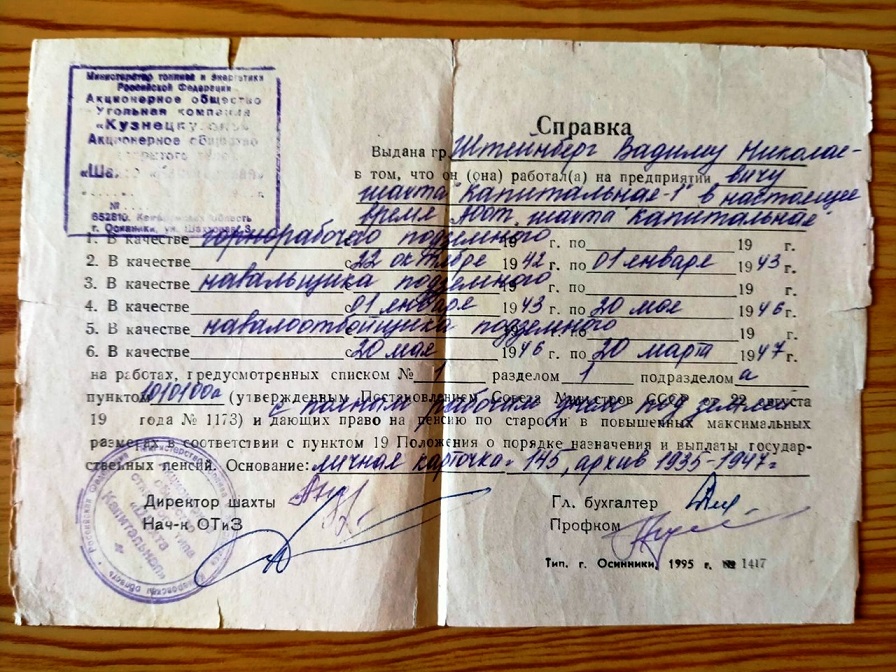 Министерство топлива и энергетики
Российской Федерации
Акционерное общество
Угольная компания
«Кузнецкуголь»
Акционерное общество
открытого типа
«Шахта Капитальная»
г.
№
652810. Кемеровская область
г. Осинники, ул. Шахтовая, 3.
Справка
Выдана гр. Штейнберг Вадиму Николае-
в том, что он (она) работал(а) на предприятии вичу
шахта "Капитальная-1" в настоящее
время АООТ "шахта Капитальная"
1. В качестве горнорабочего подземного 19 г. по 19 г.
2. В качестве с 22 октября 1942 г. по 01 января 1943 г.
3. В качестве навальщика подземного 19 г. по 19 г.
4. В качестве с 01 января 1943 г. по 20 мая 1946 г.
5. В качестве навалоотбойщика подземного 19 г. по 19 г.
6. В качестве с 20 мая 1946 г. по 20 марта 1947 г.
на работах, предусмотренных списком № 1 разделом 1 подразделом а
пунктом 1010100а (утвержденным Постановлением Совета Министров СССР от 22 августа
с полным рабочим днем под землей
19 года № 1173) и дающих право на пенсию по старости в повышенных максимальных
размерах в соответствии с пунктом 19 Положения о порядке назначения и выплаты государ-
ственных пенсий. Основание: личная карточка 145, архив 1935-1947г
Директор шахты
Нач-к ОТиЗ
Гл. бухгалтер
Профком
Тип. г. Осинники, 1995 г. № 1417
Российская Федерация
открытого типа
«Шахта
Капитальная»